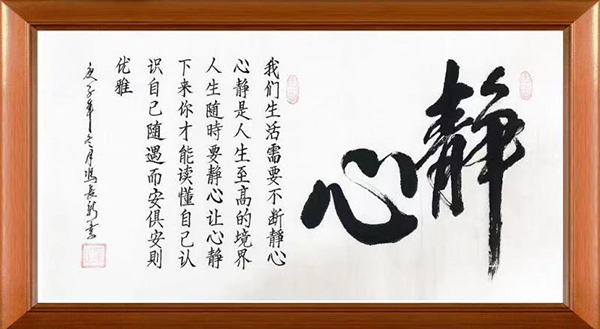 静
心
我们生活需要不断静心
心静是人生至高的境界
人生随時要静心让心静
下来你才能读懂自己认
识自己随遇而安俱安則
优雅
庚子年冬月